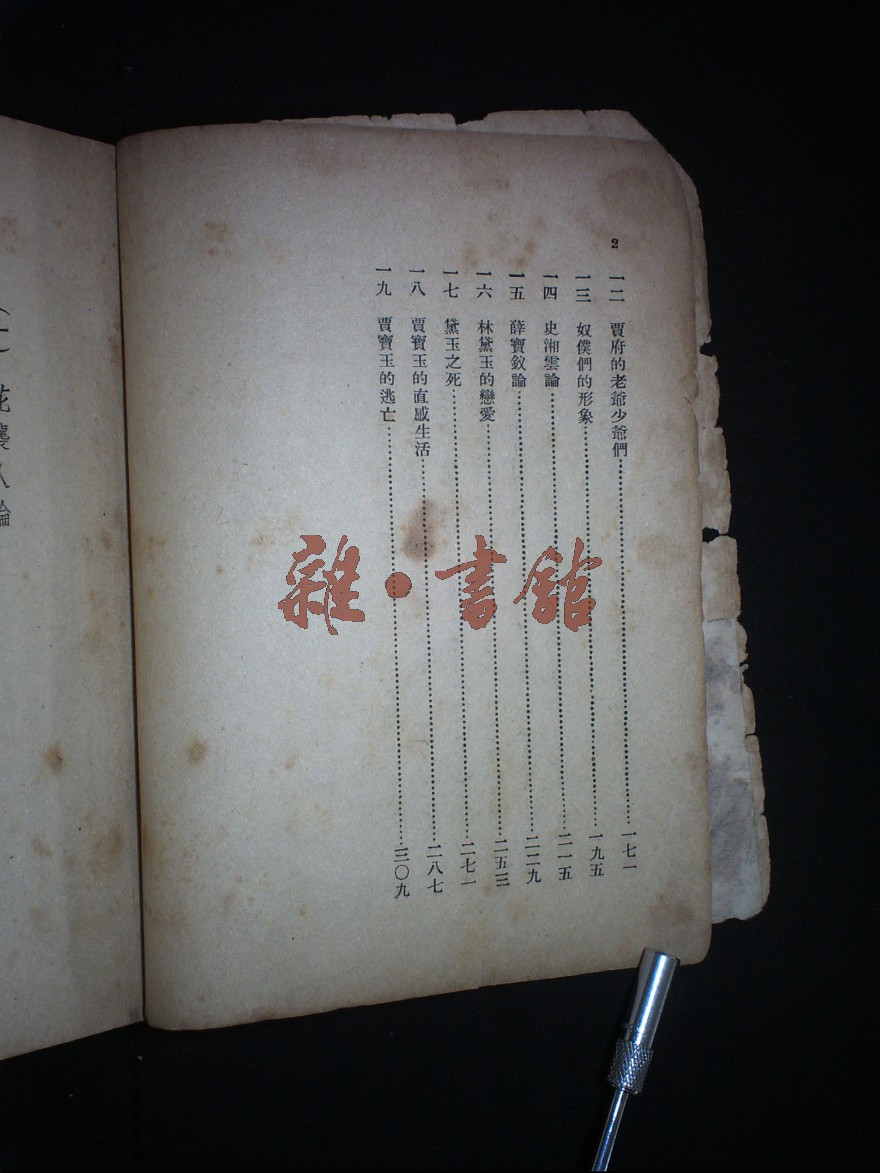 2
一二 賈府的老爺少爺們…………一七一
一三 奴僕們的形象…………一九五
一四 史湘雲論…………二一五
一五 薛寶釵論…………二二九
一六 林黛玉的戀愛…………二五三
一七 黛玉之死…………二七一
一八 賈寶玉的直感生活…………二八七
一九 賈寶玉的逃亡…………三〇九
(一) 花襲人論
雜·書館